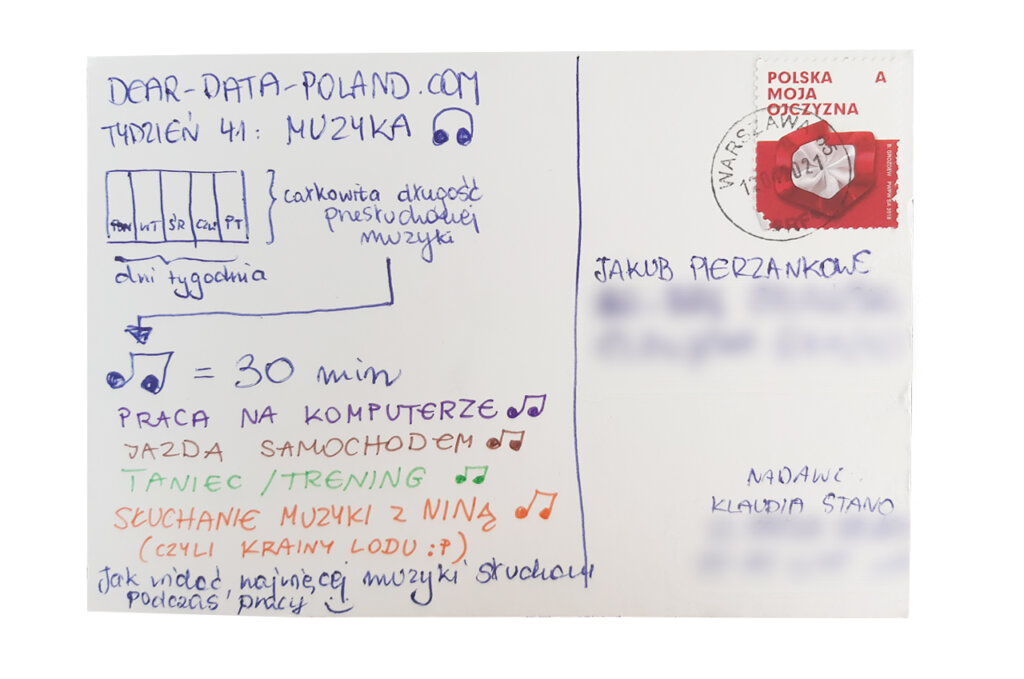 DEAR-DATA-POLAND.COM
TYDZIEŃ 41: MUZYKA
PON WT ŚR CZW PT
całkowita długość
przesłuchanej
muzyki
dni tygodnia
= 30 min
PRACA NA KOMPUTERZE
JAZDA SAMOCHODEM
TANIEC / TRENING
SŁUCHANIE MUZYKI Z NINĄ
(CZYLI KRAINY LODU :P)
Jak widać, najwięcej muzyki słucham
podczas pracy
POLSKA A
MOJA
OJCZYZNA
WARSZAWA
JAKUB PIERZANKOWE
NADAWC
KLAUDIA STANO